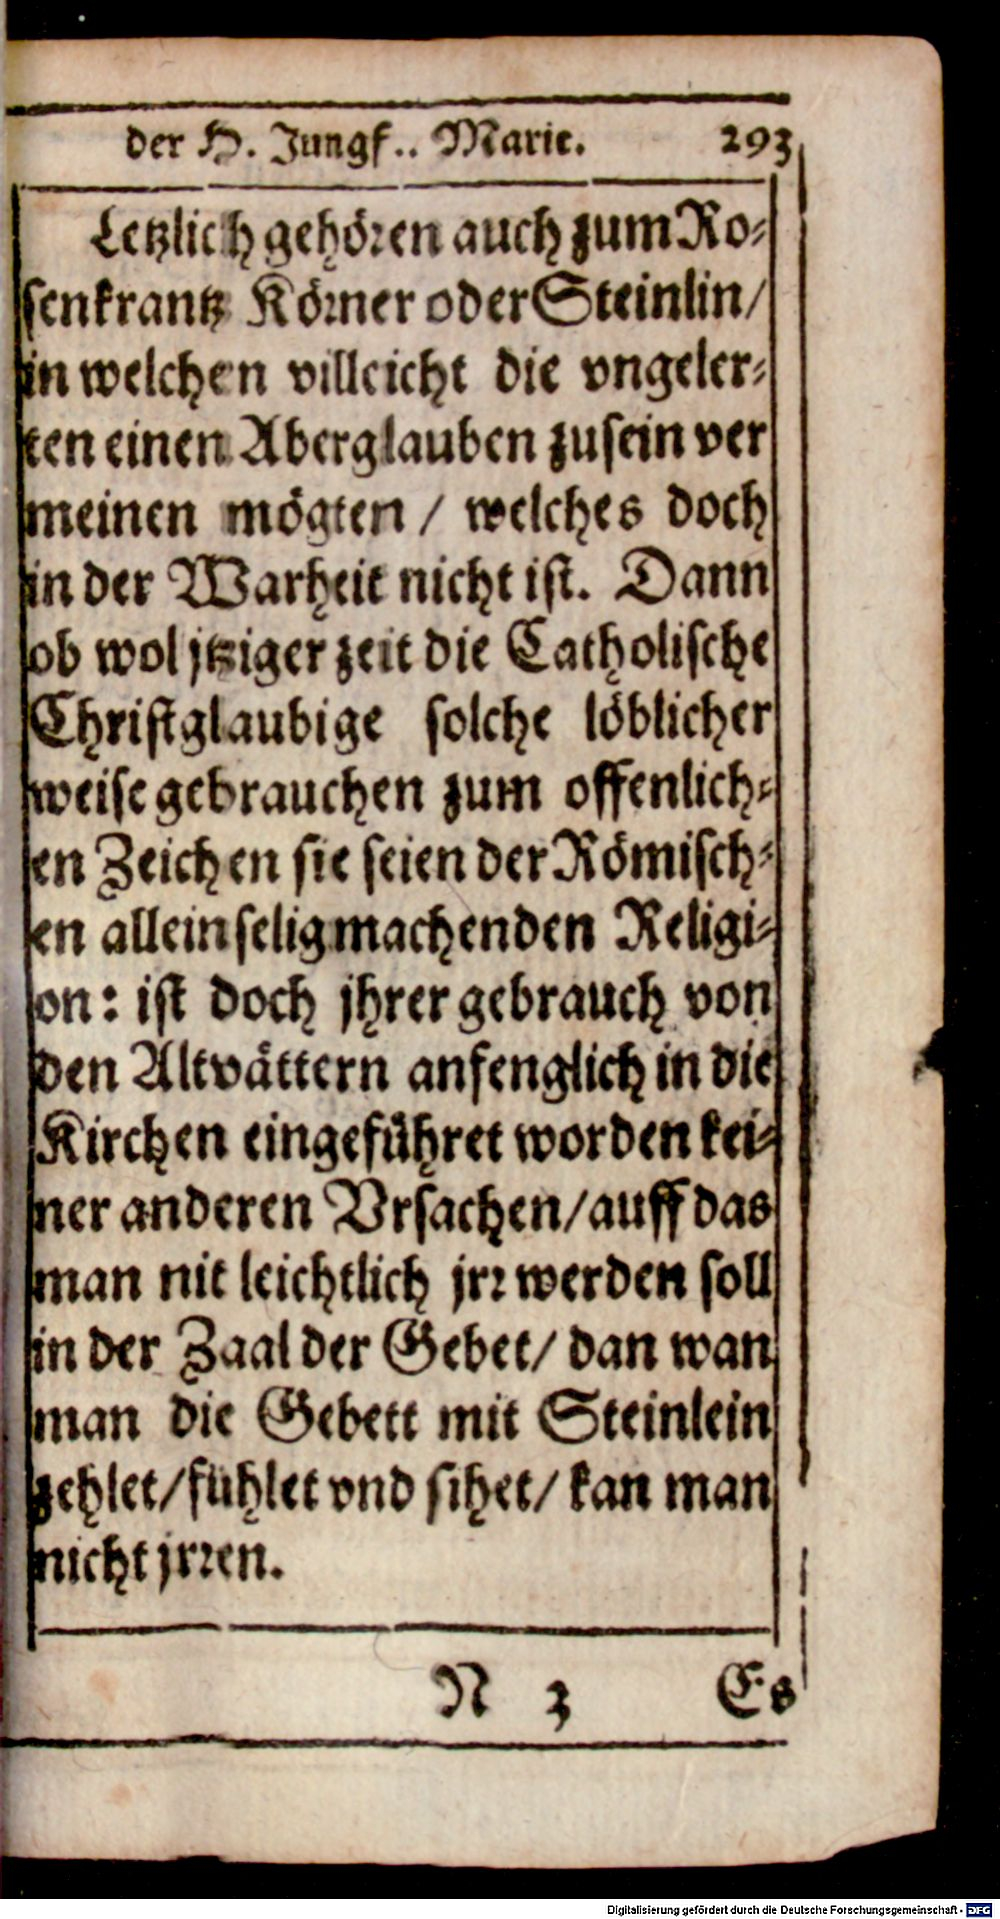 der H. Jungf.. Marie. 293
Letzlich gehören auch zum Ro-
senkrantz Körner oder Steinlin/
in welchen villeicht die vngeler-
ten einen Aberglauben zu sein ver
meinen mögten / welches doch
in der Warheit nicht ist. Dann
ob wol jtziger zeit die Catholische
Christglaubige solche löblicher
weise gebrauchen zum offenlich-
en Zeichen sie seien der Römisch-
en allein seligmachenden Religi-
on: ist doch jhrer gebrauch von
den Altvättern anfenglich in die
Kirchen eingeführet worden kei-
ner anderen Vrsachen/ auff das
man nit leichtlich jrr werden soll
in der Zaal der Gebet/ dan wan
man die Gebett mit Steinlein
zehlet/ fühlet vnd sihet/ kan man
nicht jrren.
N 3 Es
Digitalisierung gefördert durch die Deutsche Forschungsgemeinschaft - DFG